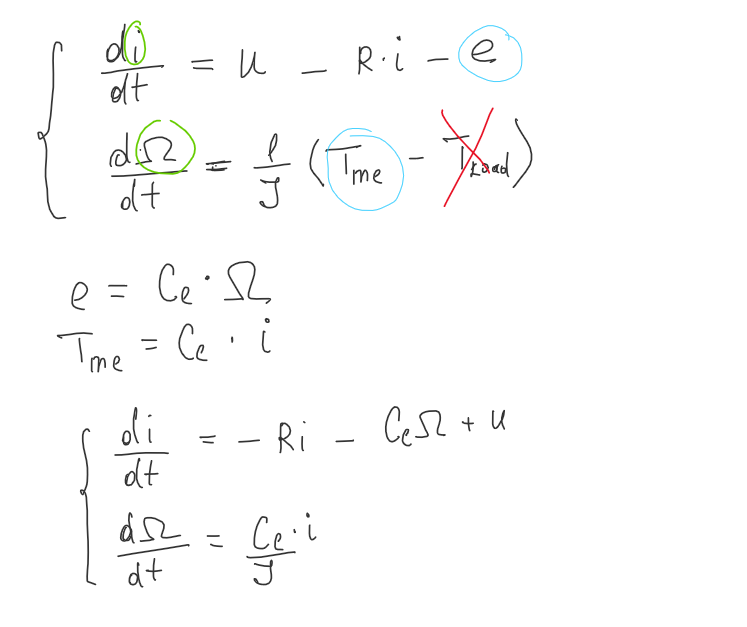 di/dt = u - R·i - e
dΩ/dt = 1/J (Tme - TLoad)
e = Ce·Ω
Tme = Ce · i
di/dt = - Ri - CeΩ + u
dΩ/dt = Ce·i/J